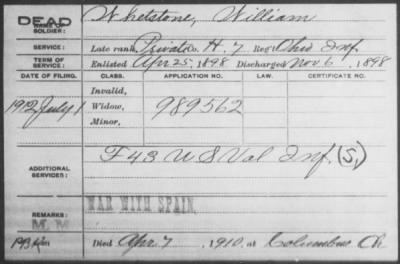 DEAD Whetstone, William
NAME OF
SOLDIER:
SERVICE: Late rank, Private Co. H. 7 Reg't Ohio Inf.
TERM OF
SERVICE: Enlisted Apr 25, 1898 Discharged Nov 6, 1898
DATE OF FILING. CLASS. APPLICATION NO. LAW. CERTIFICATE NO.
Invalid,
1912 July 1 Widow, 989562
Minor,
ADDITIONAL
SERVICES: F 43 U S Vol Inf. (S,)
WAR WITH SPAIN.
REMARKS:
M. M.
Died Apr. 7 1910, at Columbus O.